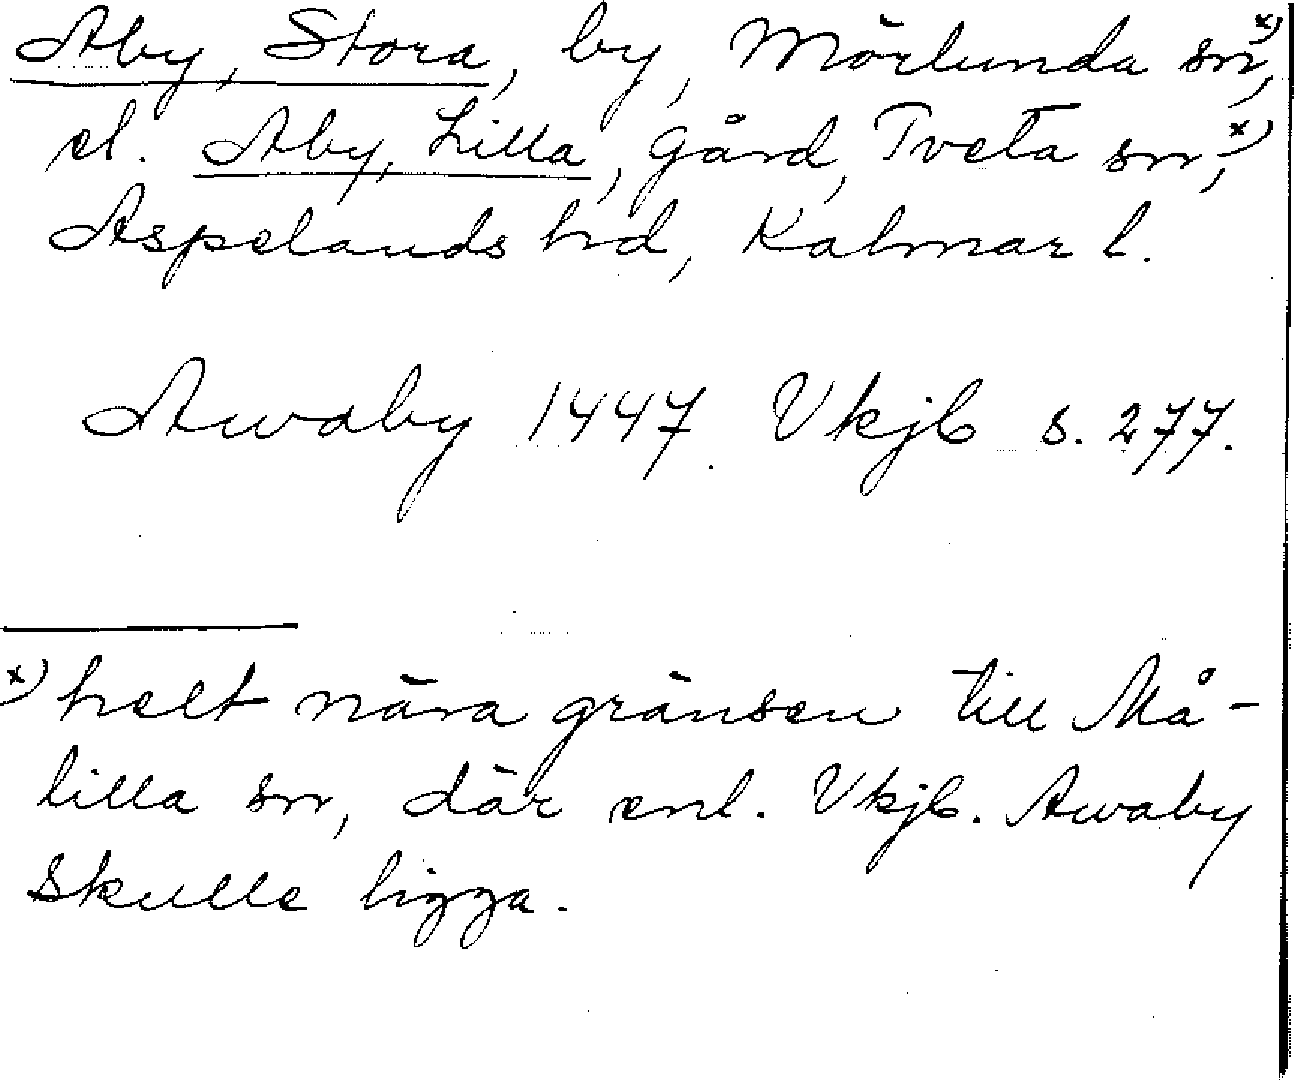 Aby, Stora, by, Mörlunda sn,x)
el. Aby, Lilla, gård, Tveta sn,x)
Aspelands hd, Kalmar l.
Awaby 1447. Vkjb s. 277.
x) helt nära gränsen till Må-
lilla sn, där enl. Vkjb. Awaby
skulle ligga.